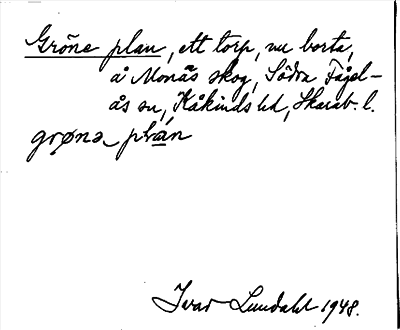 Gröne plan, ett torp, nu borta,
å Monäs skog, Södra Fågel-
ås sn, Kåkinds hd, Skarab. l.
grøna plan
Ivar Lundahl 1948.